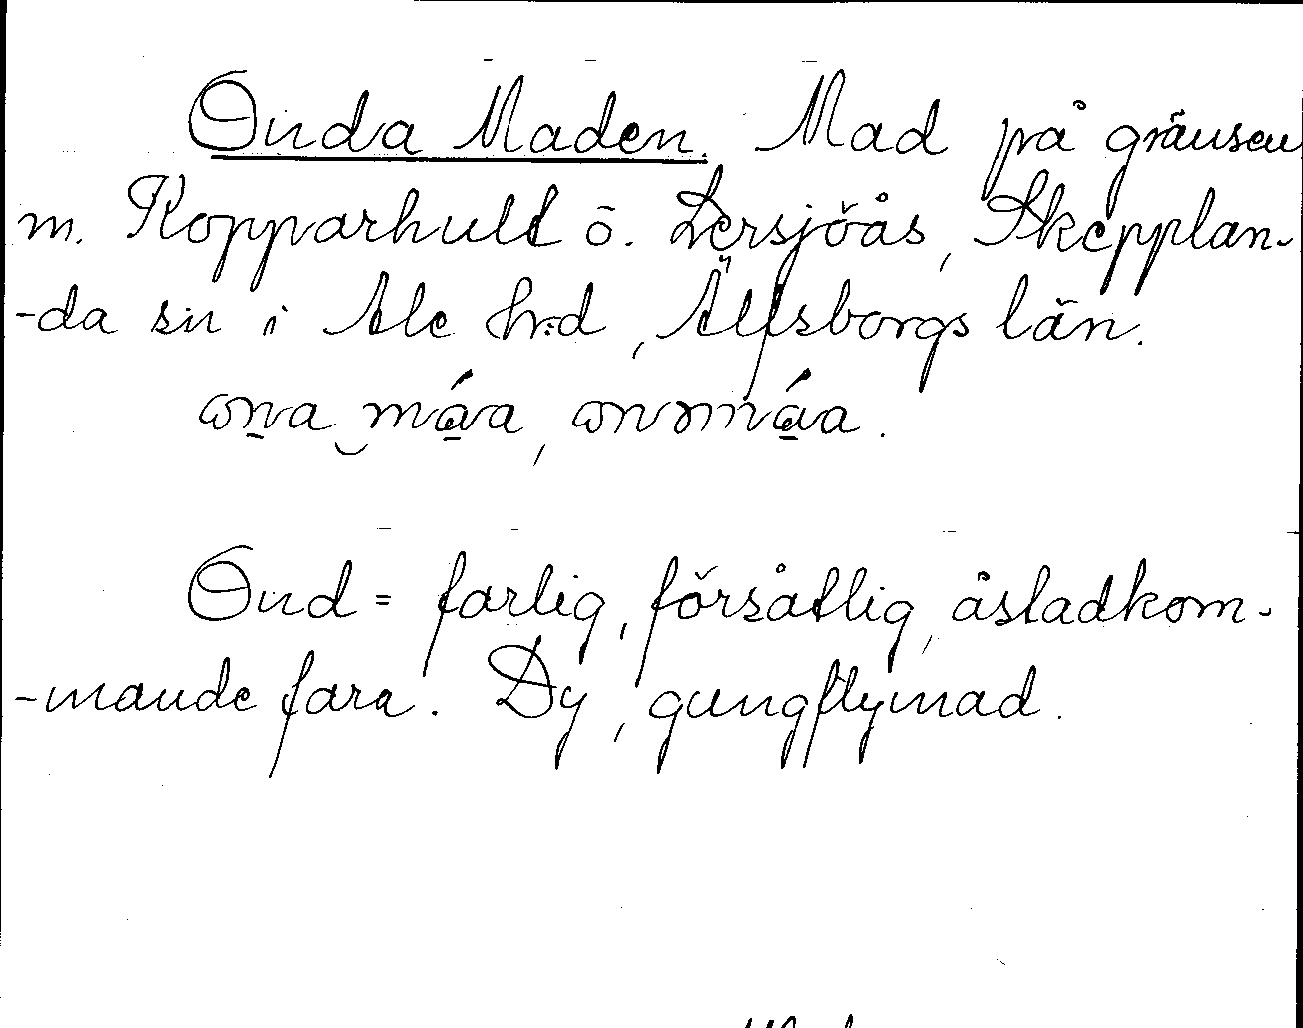 Onda Maden. Mad på gränsen
m. Kopparhult o. Lersjöås, Skepplan-
-da sn i Ale hrd, Älfsborgs län.
Ond = farlig, försåtlig, åstadkom-
-mande fara. Dy, gungflymad.